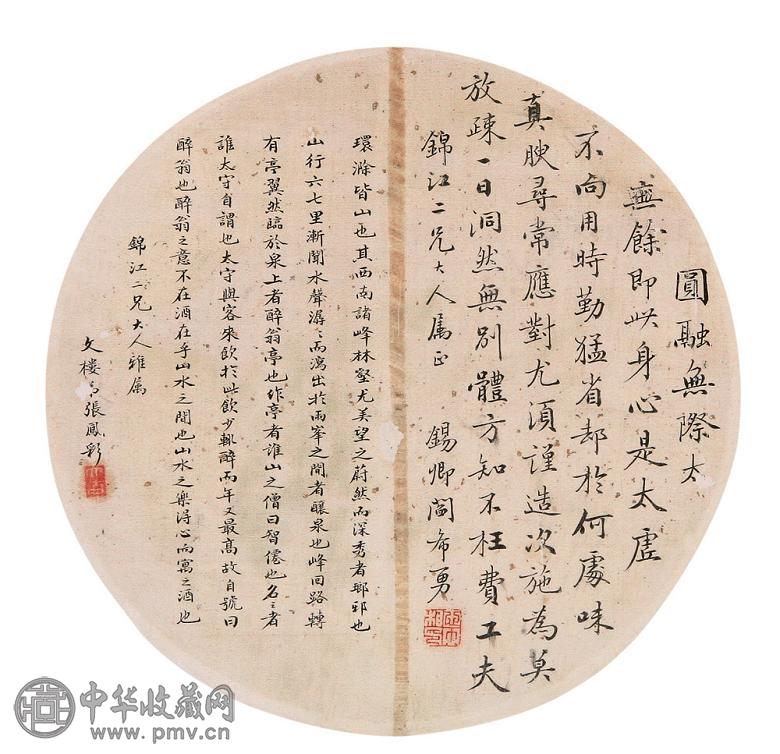 圓融無際太
無餘即此身心是太虛
不向用時勤猛省却於何處味
真腴尋常應對尤須謹造次施為莫
放疎一日洞然無別體方知不枉費工夫
錦江二兄大人属正
錫卿閻希勇
環滁皆山也其西南諸峰林壑尤美望之蔚然而深秀者瑯邪也
山行六七里漸聞水聲潺〻而瀉出於兩峯之間者釀泉也峰回路轉
有亭翼然臨於泉上者醉翁亭也作亭者誰山之僧曰智僊也名之者
誰太守自謂也太守與客來飲於此飲少輒醉而年又最高故自號曰
醉翁也醉翁之意不在酒在乎山水之間也山水之樂得心而寓之酒也
錦江二兄大人雅属
文樓弟張鳳彩
中华收藏网
www.pmv.cn